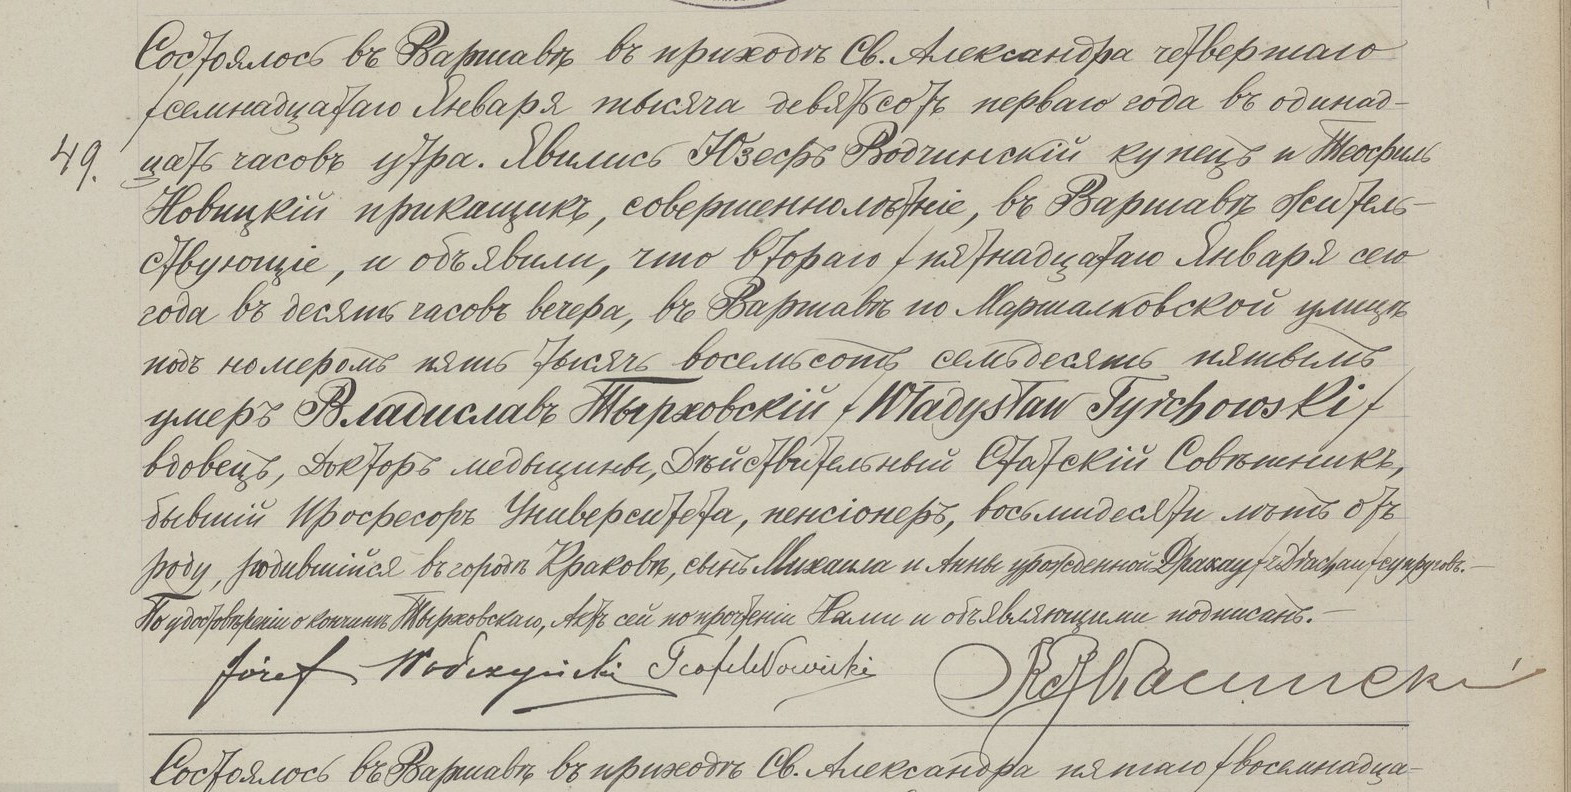 Состоялось въ Варшавѣ въ приходѣ Св. Александра четвертаго
/семнадцатаго Января тысяча девятьсотъ перваго года въ одинад-
49. цать часовъ утра. Явились Юзефъ Водчинскій купецъ и Теофиль
Новицкій прикащикъ, совершеннолѣтніе, въ Варшавѣ житель-
ствующіе, и объявили, что втораго / пятнадцатаго Января сего
года въ десять часовъ вечера, въ Варшавѣ по Маршалковской улицѣ
подъ номеромъ пять тысячъ восемьсотъ семьдесятъ пятымъ
умеръ Владиславъ Тырховскій /Władysław Tyrchowski/
вдовецъ, Докторъ медыцины, Дѣйствительный Статскій Совѣтникъ,
бывшій Профессоръ Университета, пенсіонеръ, восьмидесяти лѣтъ отъ
роду, родившійся въ городѣ Краковѣ, сынъ Михаила и Анны урожденной /супруговъ.—
По удостовѣреніи о кончинѣ Тырховскаго, Актъ сей по прочтеніи Нами и объявляющими подписанъ.—
Józef Wodczyński Teofil Nowicki
Состоялось въ Варшавѣ въ приходѣ Св. Александра пятаго /восемнадца-